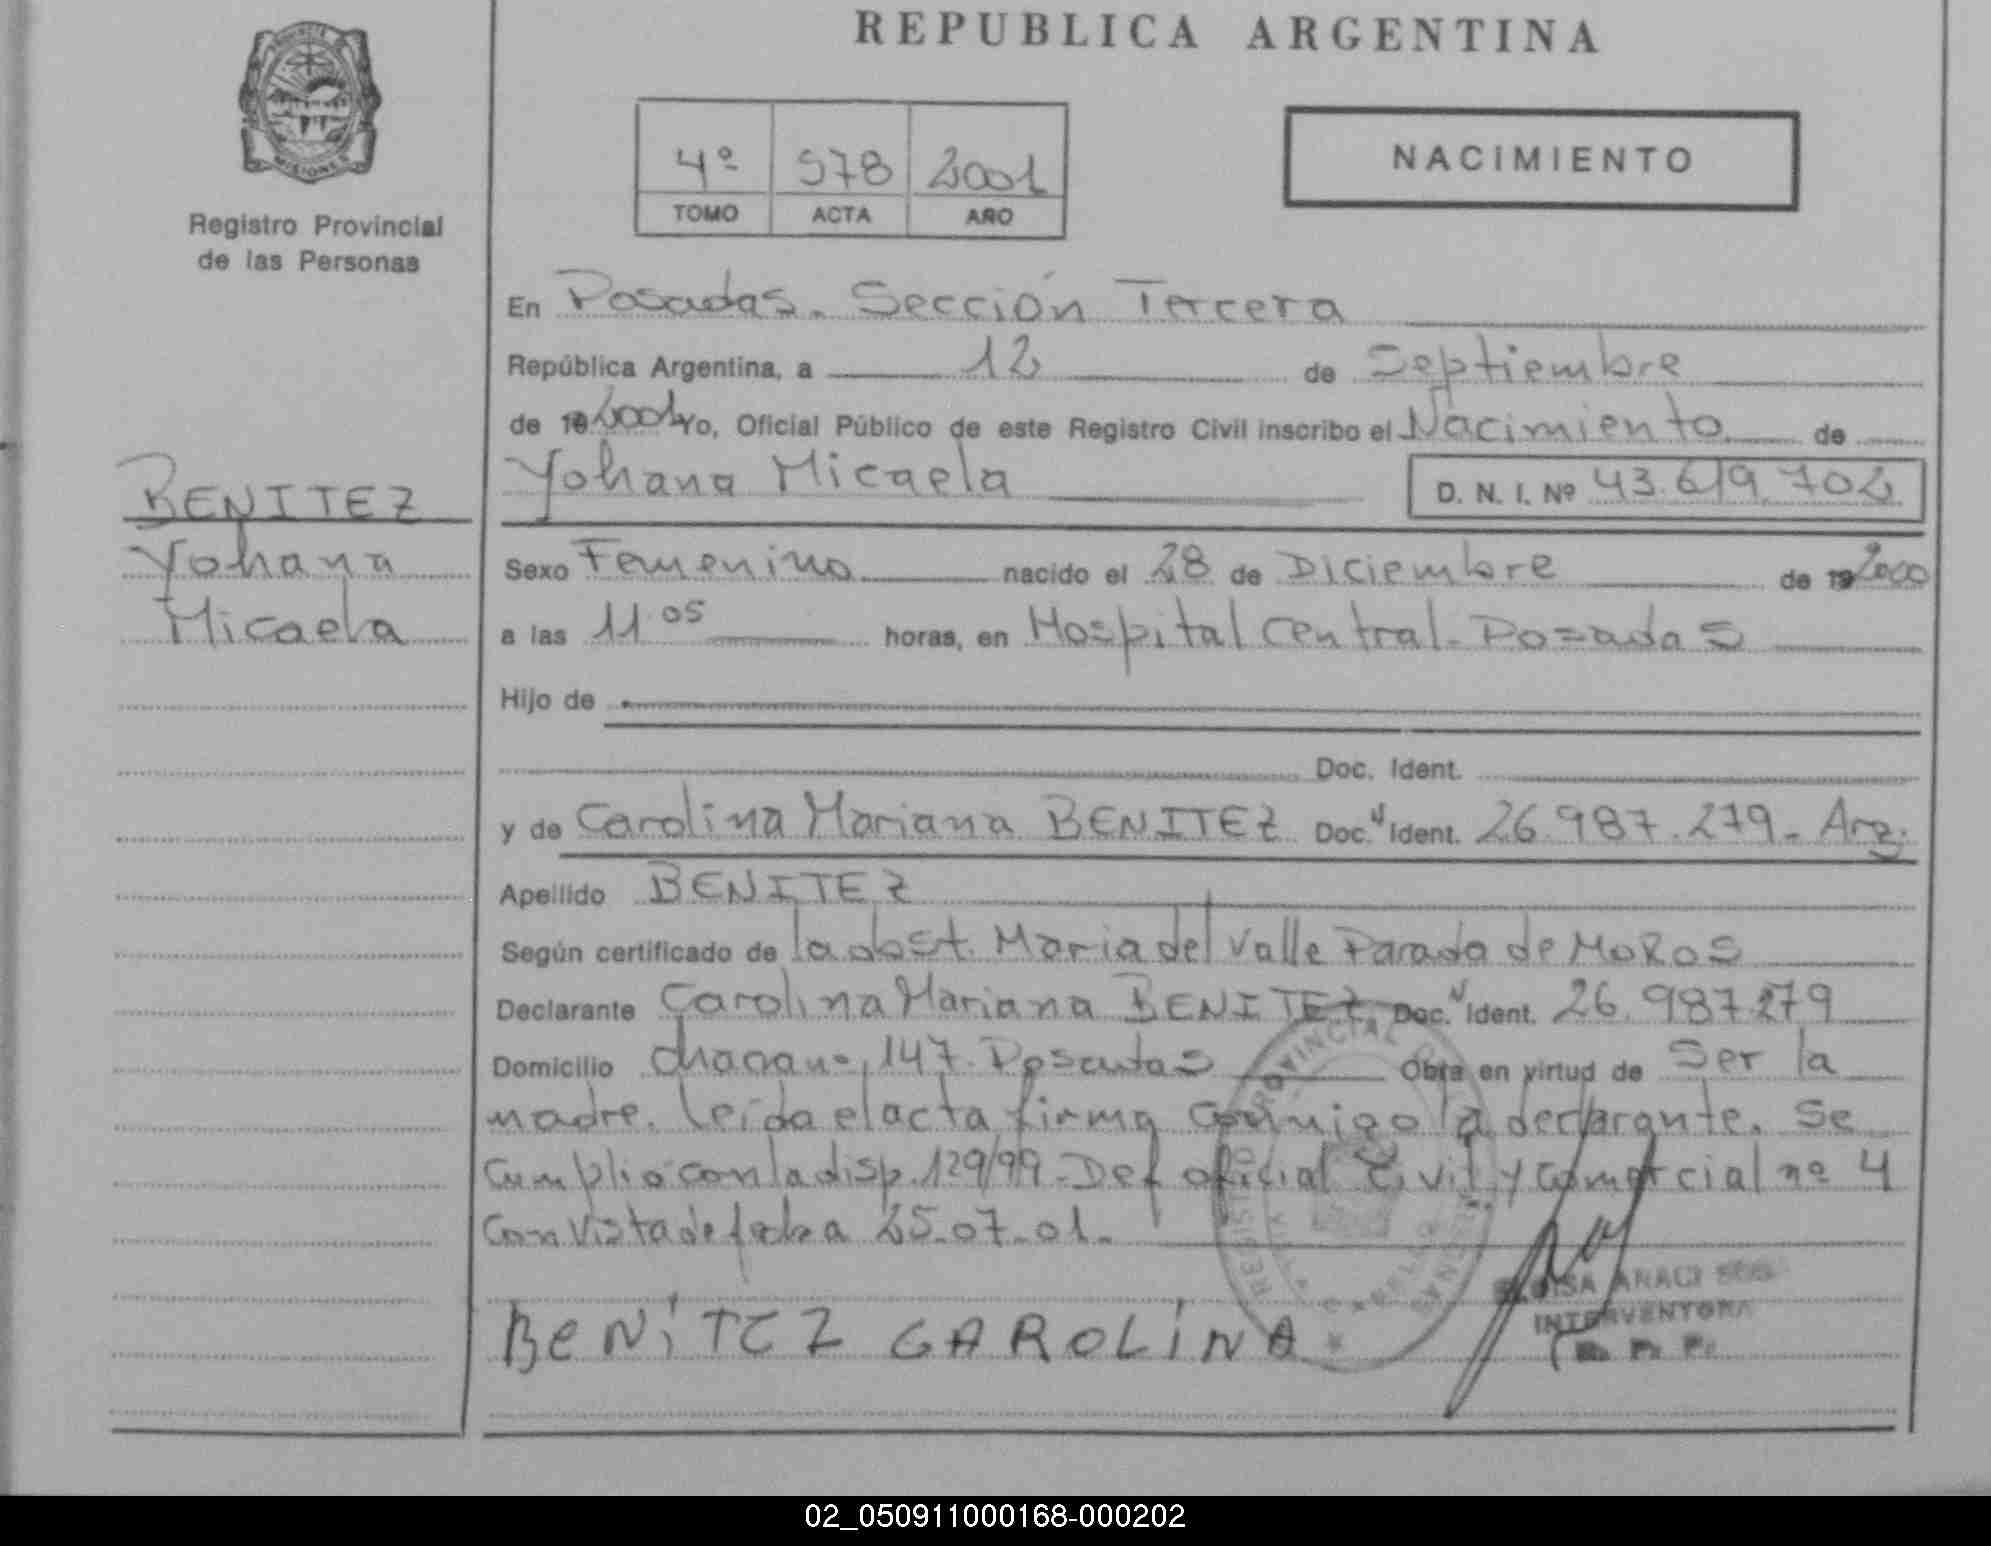 REPUBLICA ARGENTINA
PROVINCIA
MISIONES
Registro Provincial
de las Personas
4º 578 2001
TOMO ACTA AÑO
NACIMIENTO
En Posadas. Sección Tercera
República Argentina, a 12 de Septiembre
de 19 2001 Yo, Oficial Público de este Registro Civil inscribo el Nacimiento de
Yohana Micaela D. N. I. Nº 43.619.702
BENITEZ
Yohana
Micaela
Sexo Femenino nacido el 28 de Diciembre de 19 2000
a las 11.05 horas, en Hospital Central - Posadas
Hijo de
Doc. Ident.
y de Carolina Mariana BENITEZ Doc. Ident. 26.987.279 - Arg.
Apellido BENITEZ
Según certificado de la obst. Maria del Valle Parada de MoRos
Declarante Carolina Mariana BENITEZ Doc. Ident. 26.987.279
Domicilio 147. Posadas Obra en virtud de Ser la
madre. leída el acta firma conmigo la declarante. Se
Cumplió con la disp. 129/99 - Def oficial Civil y Comercial nº 4
Con Vista de fecha 25-07-01.-
BENiTEZ CAROLiNA
ANACI
INTERVENTORA
02_050911000168-000202